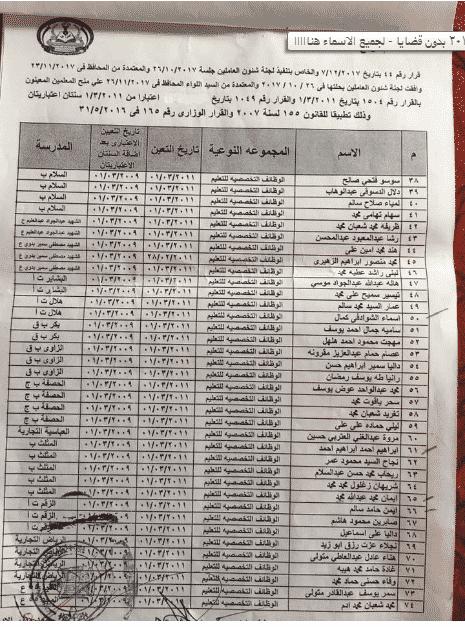 ٢٠١ بدون قضايا - لجميع الاسماء هناااااا
قرار رقم ٤٤ بتاريخ ٧/١٢/٢٠١٧ والخاص بتنفيذ لجنة شئون العاملين جلسة ٢٦/١٠/٢٠١٧ والمعتمدة من المحافظ فى ٢٣/١١/٢٠١٧
وافقت لجنة شئون العاملين بجلستها فى ٢٦/١٠/٢٠١٧ والمعتمدة من السيد اللواء المحافظ فى ٢٦/١١/٢٠١٧ على منح المعلمين المعينون
بالقرار رقم ١٥٠٤ بتاريخ ١/٣/٢٠١١ والقرار رقم ١٠٤٩ بتاريخ اعتبارا من ١/٣/٢٠١١ سنتان اعتباريتان
وذلك تطبيقا للقانون ١٥٥ لسنة ٢٠٠٧ والقرار الوزارى رقم ١٦٥ فى ٣١/٥/٢٠١٦
م الاسم المجموعه النوعية تاريخ التعين تاريخ التعيين الاعتبارى بعد اضافة السنتان الاعتباريتان المدرسة
٣٨ سوسو فتحى صالح الوظائف التخصصيه للتعليم ٠١/٠٣/٢٠١١ ٠١/٠٣/٢٠٠٩ السلام ب
٣٩ دلال الدسوقى عبدالوهاب الوظائف التخصصيه للتعليم ٠١/٠٣/٢٠١١ ٠١/٠٣/٢٠٠٩ السلام ب
٤٠ لمياء صلاح سالم الوظائف التخصصيه للتعليم ٠١/٠٣/٢٠١١ ٠١/٠٣/٢٠٠٩ السلام ب
٤١ سهام تهامى محمد الوظائف التخصصيه للتعليم ٠١/٠٣/٢٠١١ ٠١/٠٣/٢٠٠٩ السلام ب
٤٢ ظريفه محمد شعبان محمد الوظائف التخصصيه للتعليم ٠١/٠٣/٢٠١١ ٠١/٠٣/٢٠٠٩ الشهيد عبدالجواد عبدالعليم ع
٤٣ رشا عبدالمعبود عبدالمحسن الوظائف التخصصيه للتعليم ٠١/٠٣/٢٠١١ ٠١/٠٣/٢٠٠٩ الشهيد عبدالجواد عبدالعليم ع
٤٤ هند محمد امين على الوظائف التخصصيه للتعليم ٠١/٠٣/٢٠١١ ٠١/٠٣/٢٠٠٩ الشهيد مصطفى سمير بدوى ع
٤٥ محمد منصور ابراهيم الزهيرى الوظائف التخصصيه للتعليم ٠١/٠٣/٢٠١١ ٠١/٠٣/٢٠٠٩ الشهيد مصطفى سمير بدوى ع
٤٦ لبنى راشد عطيه محمد الوظائف التخصصيه للتعليم الشهيد مصطفى سمير بدوى ع
٤٧ هاله عبدالله عبدالجواد موسي الوظائف التخصصيه للتعليم ٠١/٠٣/٢٠١١ ٠١/٠٣/٢٠٠٩ البشاير ت ا
٤٨ تيسير سميح على محمد الوظائف التخصصيه للتعليم ٠١/٠٣/٢٠١١ ٠١/٠٣/٢٠٠٩ البشاير ت ا
٤٩ عمار السيد محمد سالم الوظائف التخصصيه للتعليم ٠١/٠٣/٢٠١١ ٠١/٠٣/٢٠٠٩ هلال ت ا
٥٠ اسماء الشوادفى كمال الوظائف التخصصيه للتعليم ٠١/٠٣/٢٠١١ ٠١/٠٣/٢٠٠٩ هلال ت ا
٥١ ساميه جمال احمد يوسف الوظائف التخصصيه للتعليم ٠١/٠٣/٢٠١١ ٠١/٠٣/٢٠٠٩ بكر ب ق
٥٢ مهجت محمود احمد هلهل الوظائف التخصصيه للتعليم ٠١/٠٣/٢٠١١ ٠١/٠٣/٢٠٠٩ بكر ب ق
٥٣ عصام حمام عبدالعزيز مقرونه الوظائف التخصصيه للتعليم ٠١/٠٣/٢٠١١ ٠١/٠٣/٢٠٠٩ الزاوى ب ق
٥٤ داليا سمير ابراهيم حسن الوظائف التخصصيه للتعليم ٠١/٠٣/٢٠١١ ٠١/٠٣/٢٠٠٩ الزاوى ب ق
٥٥ رانيا طه يوسف رمضان الوظائف التخصصيه للتعليم ٠١/٠٣/٢٠١١ ٠١/٠٣/٢٠٠٩ الزاوى ب ق
٥٦ محمد عبدالواحد عوض يوسف الوظائف التخصصيه للتعليم ٠١/٠٣/٢٠١١ ٠١/٠٣/٢٠٠٩ الحصفة ب ج
٥٧ سحر ياقوت محمد الوظائف التخصصيه للتعليم ٠١/٠٣/٢٠١١ ٠١/٠٣/٢٠٠٩ الحصفة ب ج
٥٨ تغريد شعبان محمد الوظائف التخصصيه للتعليم ٠١/٠٣/٢٠١١ ٠١/٠٣/٢٠٠٩ الحصفة ب ج
٥٩ ليلى حماده على على الوظائف التخصصيه للتعليم ٠١/٠٣/٢٠١١ ٠١/٠٣/٢٠٠٩ الحصفة ب ج
٦٠ مروة عبدالغنى العتربى حسين الوظائف التخصصيه للتعليم ٠١/٠٣/٢٠١١ ٠١/٠٣/٢٠٠٩ العباسية التجارية
٦١ ابراهيم احمد ابراهيم احمد الوظائف التخصصيه للتعليم ٠١/٠٣/٢٠١١ ٠١/٠٣/٢٠٠٩ المثلث ب
٦٢ نجاح السيد محمود عمر الوظائف التخصصيه للتعليم ٠١/٠٣/٢٠١١ ٠١/٠٣/٢٠٠٩ المثلث ب
٦٣ ريحاب محمد حسن عبدالسلام الوظائف التخصصيه للتعليم ٠١/٠٣/٢٠١١ ٠١/٠٣/٢٠٠٩ المثلث ب
٦٤ شريهان زغلول محمد محمد الوظائف التخصصيه للتعليم ٠١/٠٣/٢٠١١ ٠١/٠٣/٢٠٠٩ المثلث ب
٦٥ ايمان محمد عبدالله محمد الوظائف التخصصيه للتعليم ٠١/٠٣/٢٠١١ ٠١/٠٣/٢٠٠٩
٦٦ ايمن حامد سالم الوظائف التخصصيه للتعليم ٠١/٠٣/٢٠١١
٦٧ صابرين محمود هاشم الوظائف التخصصيه للتعليم ٠١/٠٣/٢٠١١
٦٨ داليا على اسماعيل الوظائف التخصصيه للتعليم ٠١/٠٣/٢٠١١
٦٩ نجلاء عزت رزق ابو زيد الوظائف التخصصيه للتعليم ٠١/٠٣/٢٠١١ الرياض التجارية
٧٠ هناء عادل عبدالعاطى متولى الوظائف التخصصيه للتعليم ٠١/٠٣/٢٠١١ الرياض التجارية
٧١ غادة حامد محمد هيبه الوظائف التخصصيه للتعليم ٠١/٠٣/٢٠١١
٧٢ وفاء حسنى حماد محمد الوظائف التخصصيه للتعليم ٠١/٠٣/٢٠١١
٧٣ سمر يوسف عبدالقادر متولى الوظائف التخصصيه للتعليم
٧٤ محمد شعبان محمد ادم الوظائف التخصصيه للتعليم